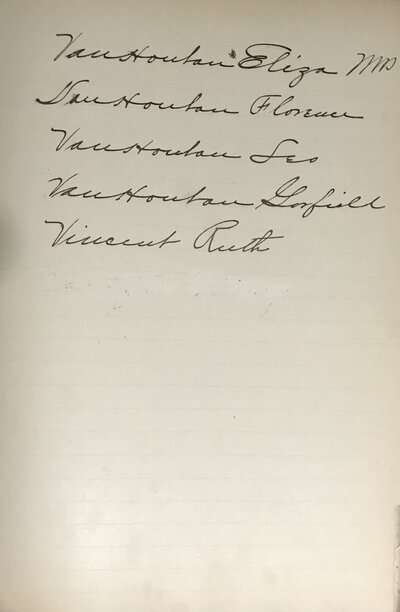 VanHoutan Eliza Mrs
VanHoutan Florence
VanHoutan Leo
VanHoutan Garfield
Vincent Ruth